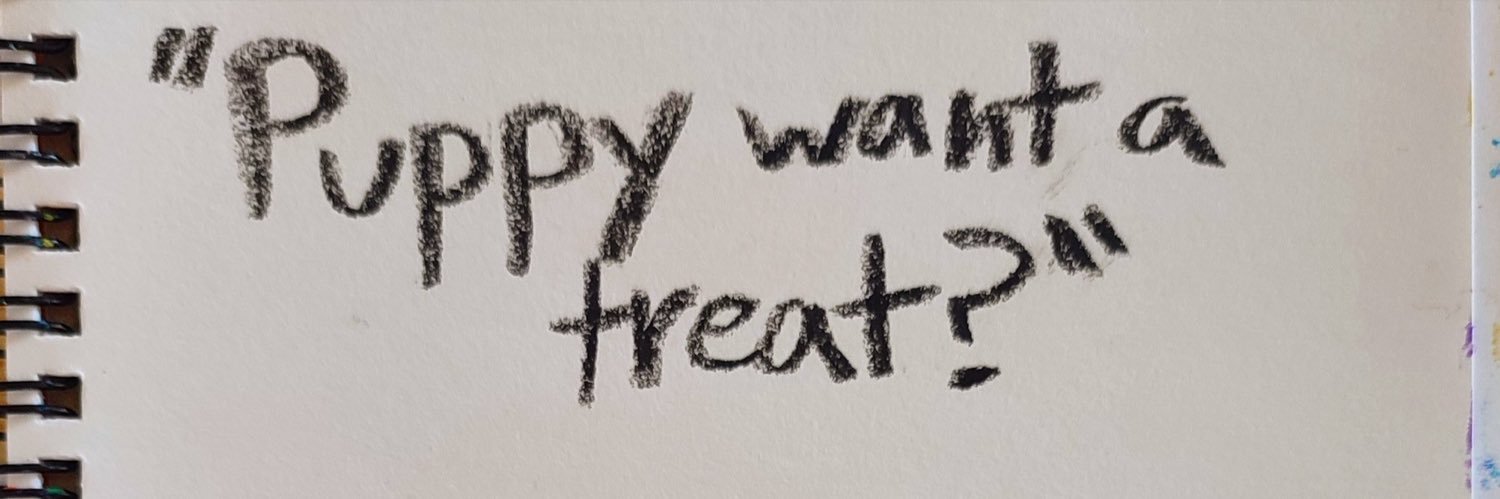 "Puppy want a
treat?"